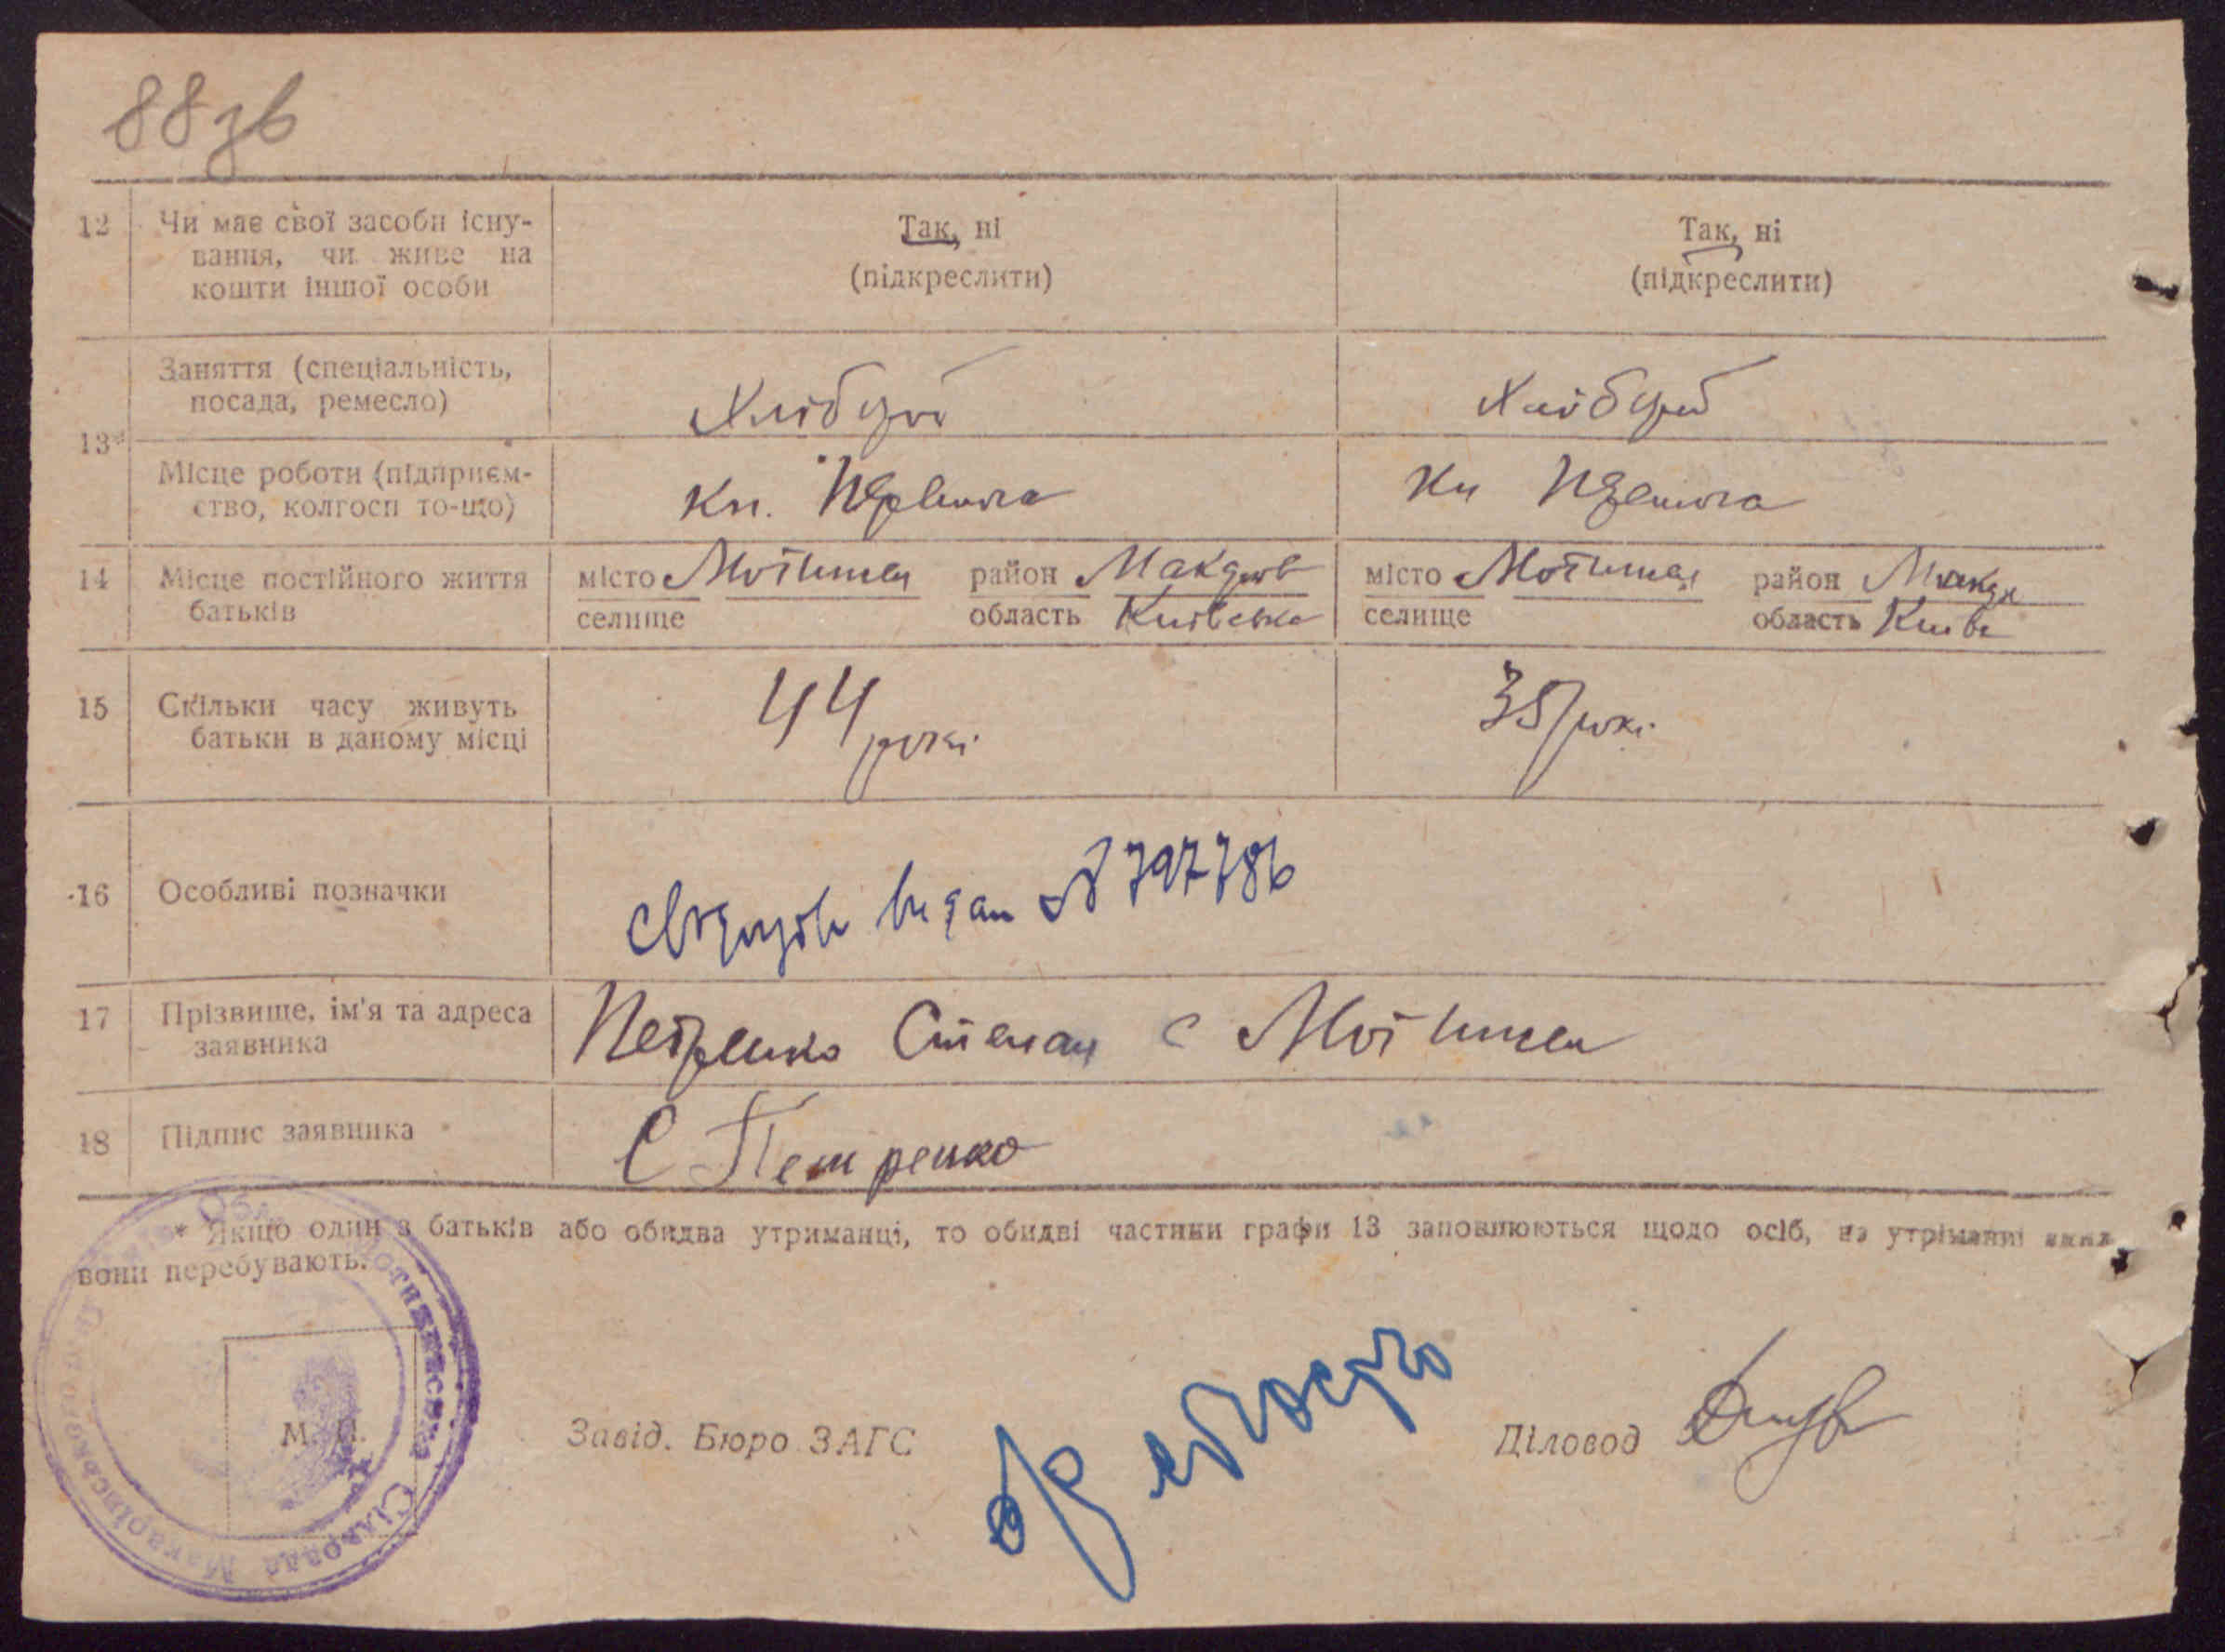 88зв
12 Чи має свої засоби існу-
вання, чи живе на
кошти іншої особи
Так, ні
(підкреслити)
Так, ні
(підкреслити)
13*
Заняття (спеціальність,
посада, ремесло)
Хлібороб
Хлібороб
Місце роботи (підприєм-
ство, колгосп то-що)
Кп.
Кп
14 Місце постійного життя
батьків
місто Мотижин район Макарів
селище область Київська
місто Мотижин район Макар
селище область Київс
15 Скільки часу живуть
батьки в даному місці
44 роки
35 роки
16 Особливі позначки
видан № 797786
17 Прізвище, ім'я та адреса
заявника
Петренко Степан с Мотижин
18 Підпис заявника
С Петренко
* Якщо один з батьків або обидва утриманці, то обидві частини графи 13 заповнюються щодо осіб, на утріманні яких
вони перебувають.
М. П.
Завід. Бюро ЗАГС
Діловод